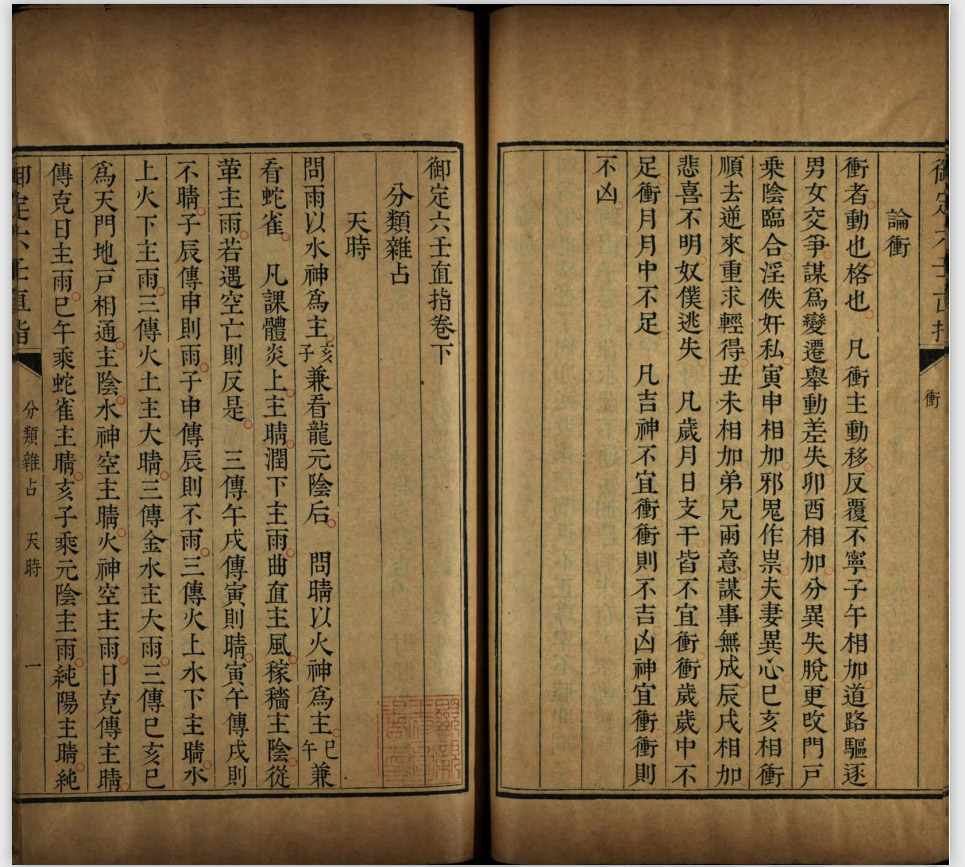 論衝
衝者動也格也　凡衝主動移反覆不寧子午相加道路驅逐
男女交爭謀爲變遷舉動差失卯酉相加分異失脫更改門戸
乗陰臨合淫佚奸私寅申相加邪鬼作祟夫妻異心巳亥相衝
順去逆來重求輕得丑未相加弟兄兩意謀事無成辰戌相加
悲喜不明奴僕逃失　凡歲月日支干皆不宜衝衝歲歲中不
足衝月月中不足　凡吉神不宜衝衝則不吉凶神宜衝衝則
不凶
衝
御定六壬直指卷下
分類雜占
天時
問雨以水神爲主亥子兼看龍元陰后　問晴以火神爲主巳午兼
看蛇雀　凡課體炎上主晴潤下主雨曲直主風稼穡主陰從
革主雨若遇空亡則反是　三傳午戌傳寅則晴寅午傳戌則
不晴子辰傳申則雨子申傳辰則不雨三傳火上水下主晴水
上火下主雨三傳火土主大晴三傳金水主大雨三傳巳亥巳
爲天門地戸相通主陰水神空主晴火神空主雨日克傳主晴
傳克日主雨巳午乘蛇雀主晴亥子乘元陰主雨純陽主晴純
御定六壬直指
分類雜占　天時
一